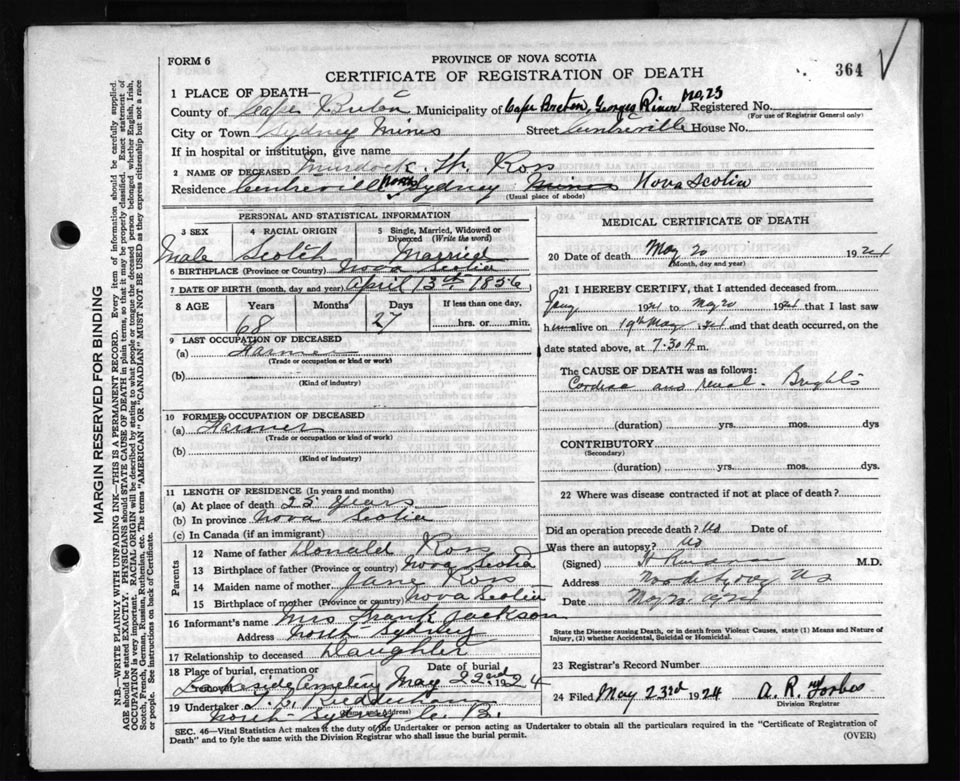 FORM 6
PROVINCE OF NOVA SCOTIA
CERTIFICATE OF REGISTRATION OF DEATH
364
1 PLACE OF DEATH—
County of Cape Breton Municipality of Cape Breton, Georges River No. 23 Registered No.
(For use of Registrar General only)
City or Town Sydney Mines Street Centreville House No.
If in hospital or institution, give name
2 NAME OF DECEASED Murdock W. Ross
Residence Centreville North Sydney Mines Nova Scotia
(Usual place of abode)
PERSONAL AND STATISTICAL INFORMATION
3 SEX
Male
4 RACIAL ORIGIN
Scotch
5 Single, Married, Widowed or Divorced (Write the word)
Married
6 BIRTHPLACE (Province or Country) Nova Scotia
7 DATE OF BIRTH (month, day and year) April 13th 1856
8 AGE Years Months Days If less than one day,
68 27 hrs. or min.
9 LAST OCCUPATION OF DECEASED
(a) Farmer
(Trade or occupation or kind of work)
(b)
(Kind of industry)
10 FORMER OCCUPATION OF DECEASED
(a) Farmer
(Trade or occupation or kind of work)
(b)
(Kind of industry)
11 LENGTH OF RESIDENCE (In years and months)
(a) At place of death 25 Years
(b) In province Nova Scotia
(c) In Canada (if an immigrant)
Parents
12 Name of father Donald Ross
13 Birthplace of father (Province or country) Nova Scotia
14 Maiden name of mother Jane Ross
15 Birthplace of mother (Province or country) Nova Scotia
16 Informant's name Mrs Frank Jackson
Address North Sydney
17 Relationship to deceased Daughter
18 Place of burial, cremation or removal Date of burial
Lakeside Cemetery May 22nd 1924
19 Undertaker
(Address)
North Sydney C. B.
MEDICAL CERTIFICATE OF DEATH
20 Date of death May 20 1924
(Month, day and year)
21 I HEREBY CERTIFY, that I attended deceased from
1924 to May 20 1924 that I last saw
him alive on 19th May 1924 and that death occurred, on
date stated above, at 7.30 A m.
The CAUSE OF DEATH was as follows:
Cardiac and renal - Brights
(duration) yrs. mos. dys
CONTRIBUTORY
(Secondary)
(duration) yrs. mos. dys.
22 Where was disease contracted if not at place of death?
Did an operation precede death? No Date of
Was there an autopsy? No
(Signed) M.D.
Address
Date
State the Disease causing Death, or in death from Violent Causes, state (1) Means and Nature of Injury, (2) whether Accidental, Suicidal or Homicidal.
23 Registrar's Record Number
24 Filed May 23rd 1924 A. R. Forbes
Division Registrar
SEC. 46—Vital Statistics Act makes it the duty of the Undertaker or person acting as Undertaker to obtain all the particulars required in the "Certificate of Registration of
Death" and to fyle the same with the Division Registrar who shall issue the burial permit.
(OVER)
MARGIN RESERVED FOR BINDING
N.B.—WRITE PLAINLY WITH UNFADING INK—THIS IS A PERMANENT RECORD. Every item of information should be carefully supplied.
AGE should be stated EXACTLY. PHYSICIANS should STATE CAUSE OF DEATH in plain terms, so that it may be properly classified. Exact statement of
OCCUPATION is very important. RACIAL ORIGIN will be described by stating to what people or tongue the deceased person belonged whether English, Irish,
Scotch, French, German, Russian, Ruthenian, etc. The terms "AMERICAN" OR "CANADIAN" MUST NOT BE USED as they express citizenship but not a race
or people. See instructions on back of Certificate.